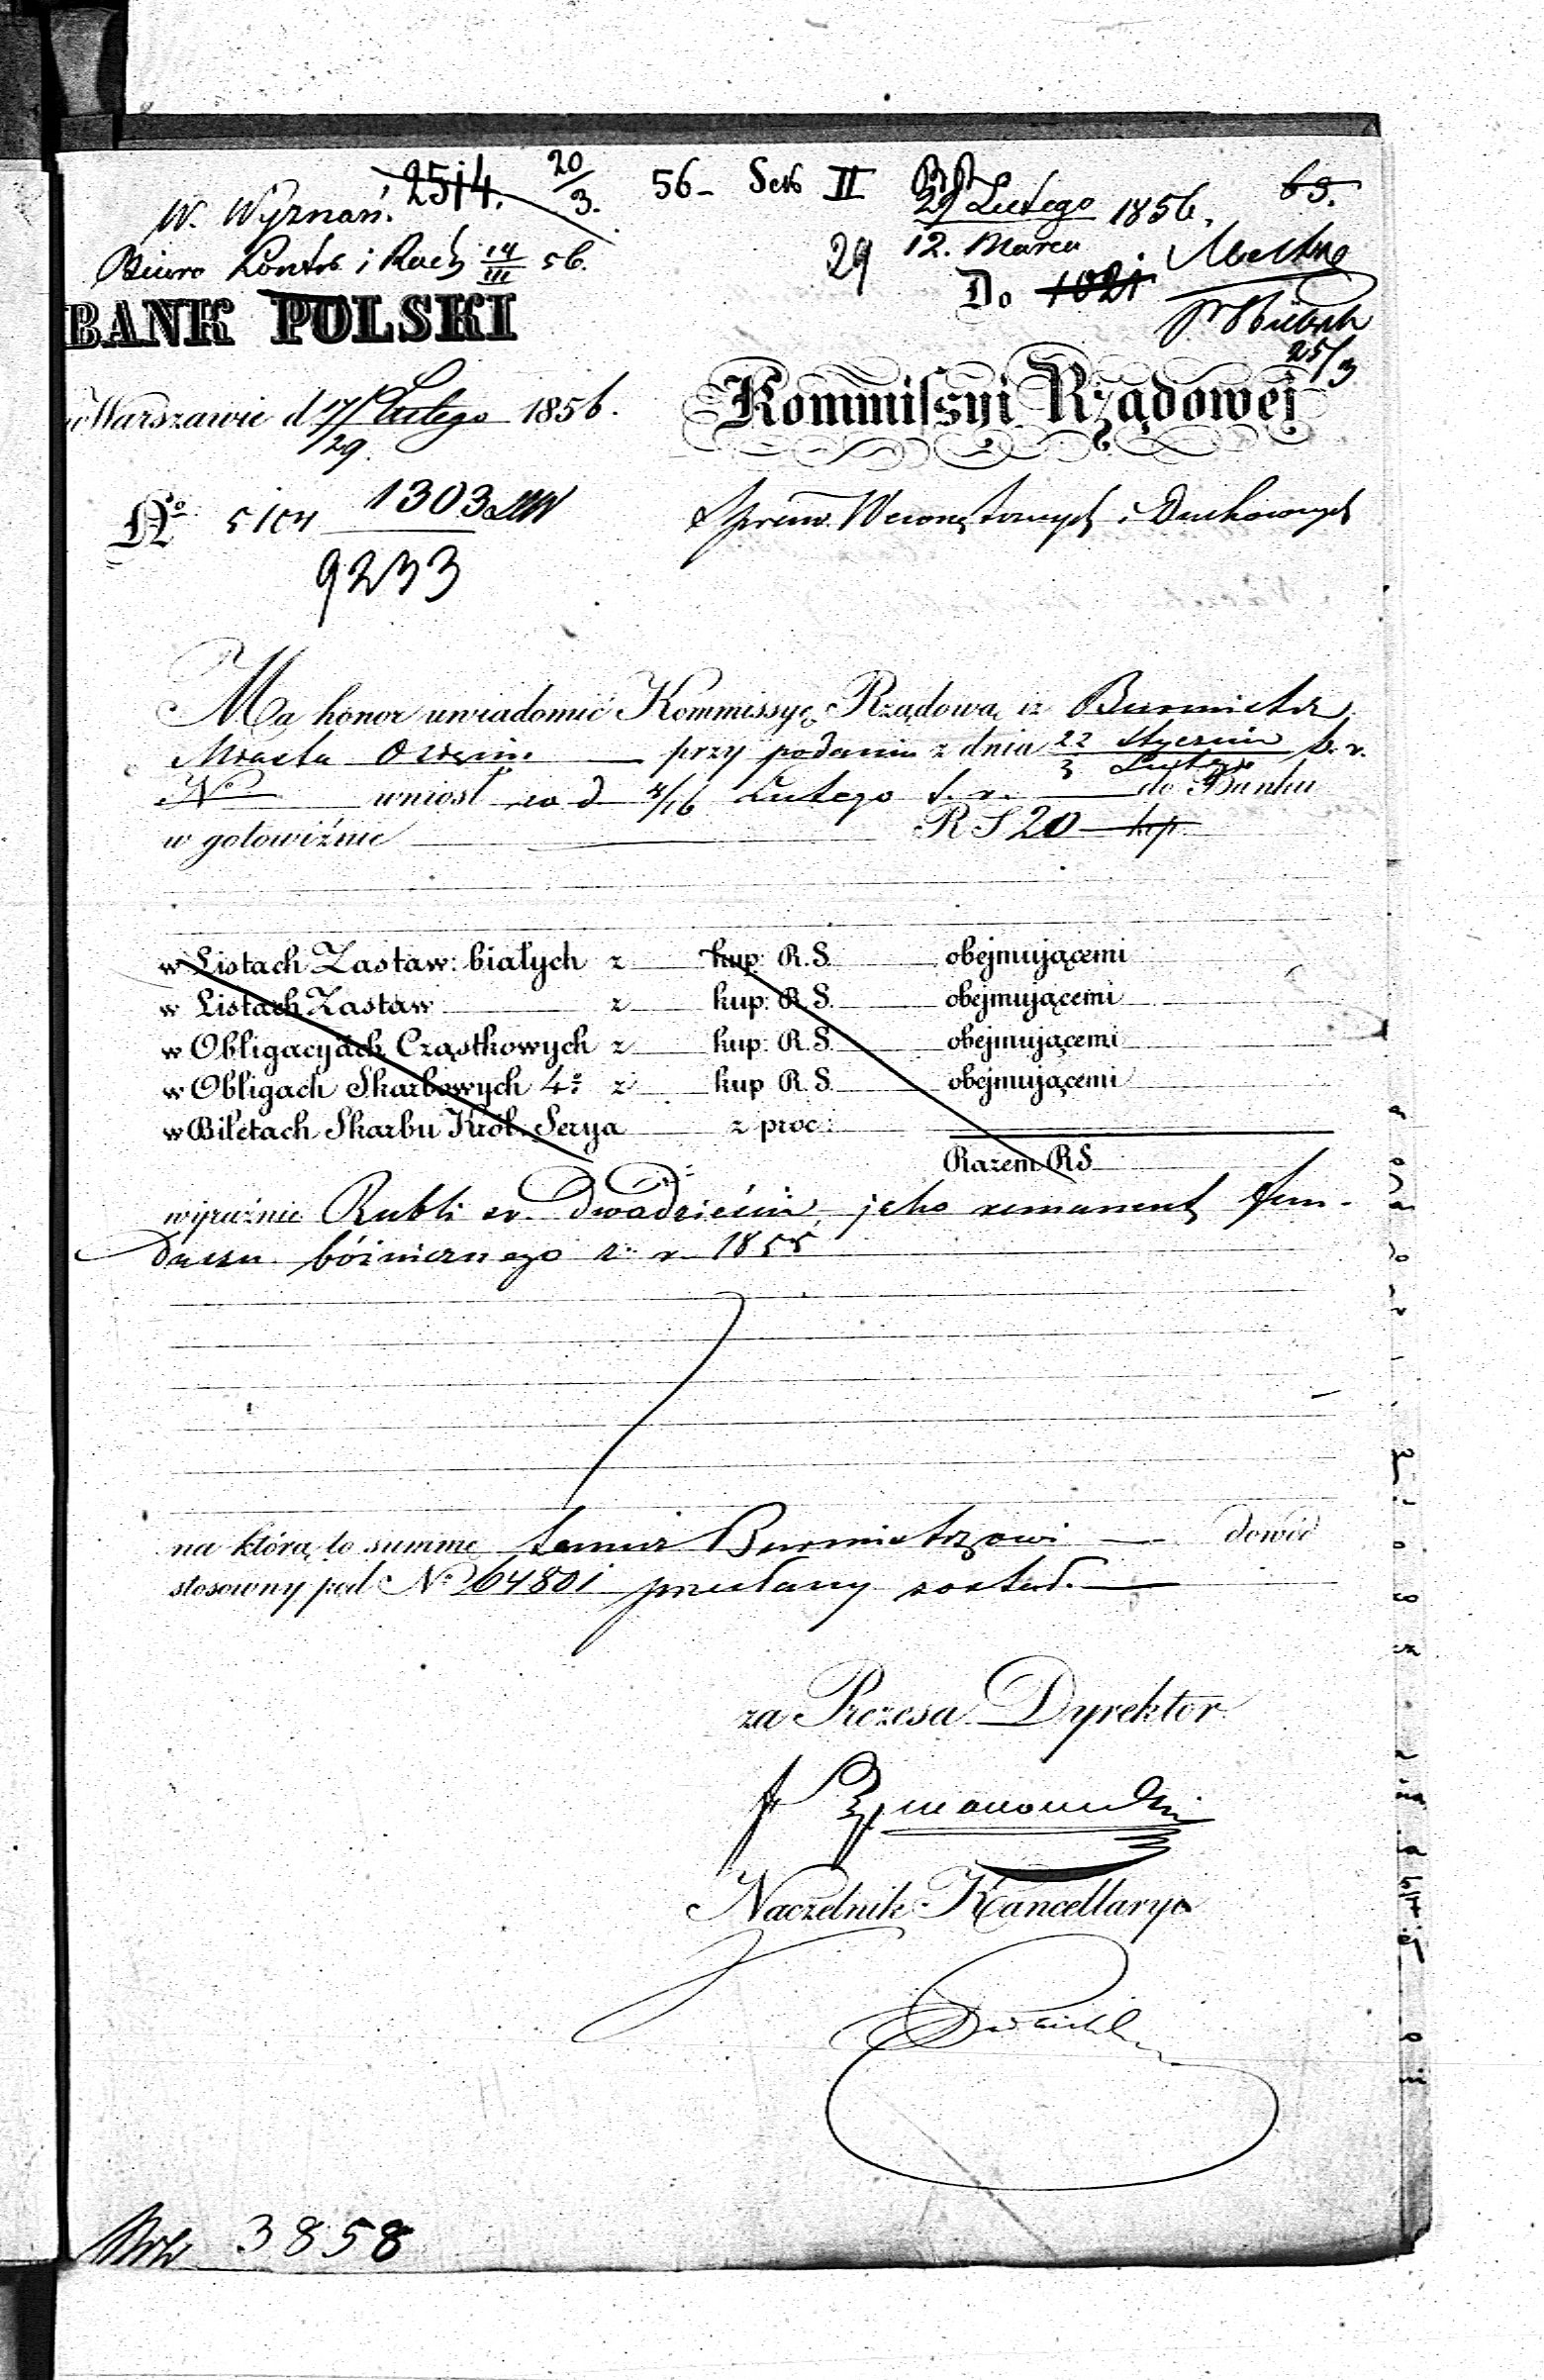 2514. 20/3. 56- Sek II 29 Lutego 1856. 65.
W. Wyznań. 29 12. Marca
Biuro Kontr. i Rach 14/III 56.
BANK POLSKI
Do 1021
25/3
w Warszawie d 17/29 Lutego 1856.
Kommissyi Rządowej
No 5104 1303
9233
Spraw Wewnętrznych i Duchownych
Ma honor uwiadomić Kommissyę Rządową iż Burmistrz
Miasta przy podaniu z dnia 22 Stycznia / 3 Lutego b. r.
No wniósł na d 4/16 Lutego b. r. do Banku
w gotowiźnie RS 20 kp
w Listach Zastaw: białych z kup: R.S. obejmującemi
w Listach Zastaw z kup: R.S. obejmującemi
w Obligacyjach Cząstkowych z kup: R.S. obejmującemi
w Obligach Skarbowych 4% z kup R.S. obejmującemi
w Biletach Skarbu Król. Serya z proc:
Razem RS
wyraźnie Rubli sr. Dwadzieścia, jako remanent fun-
duszu bóżnicznego z r. 1855
na którą to summę temuż Burmistrzowi dowód
stosowny pod No 64801 przesłany został.
za Prezesa Dyrektor
Naczelnik Kancellaryi
3858